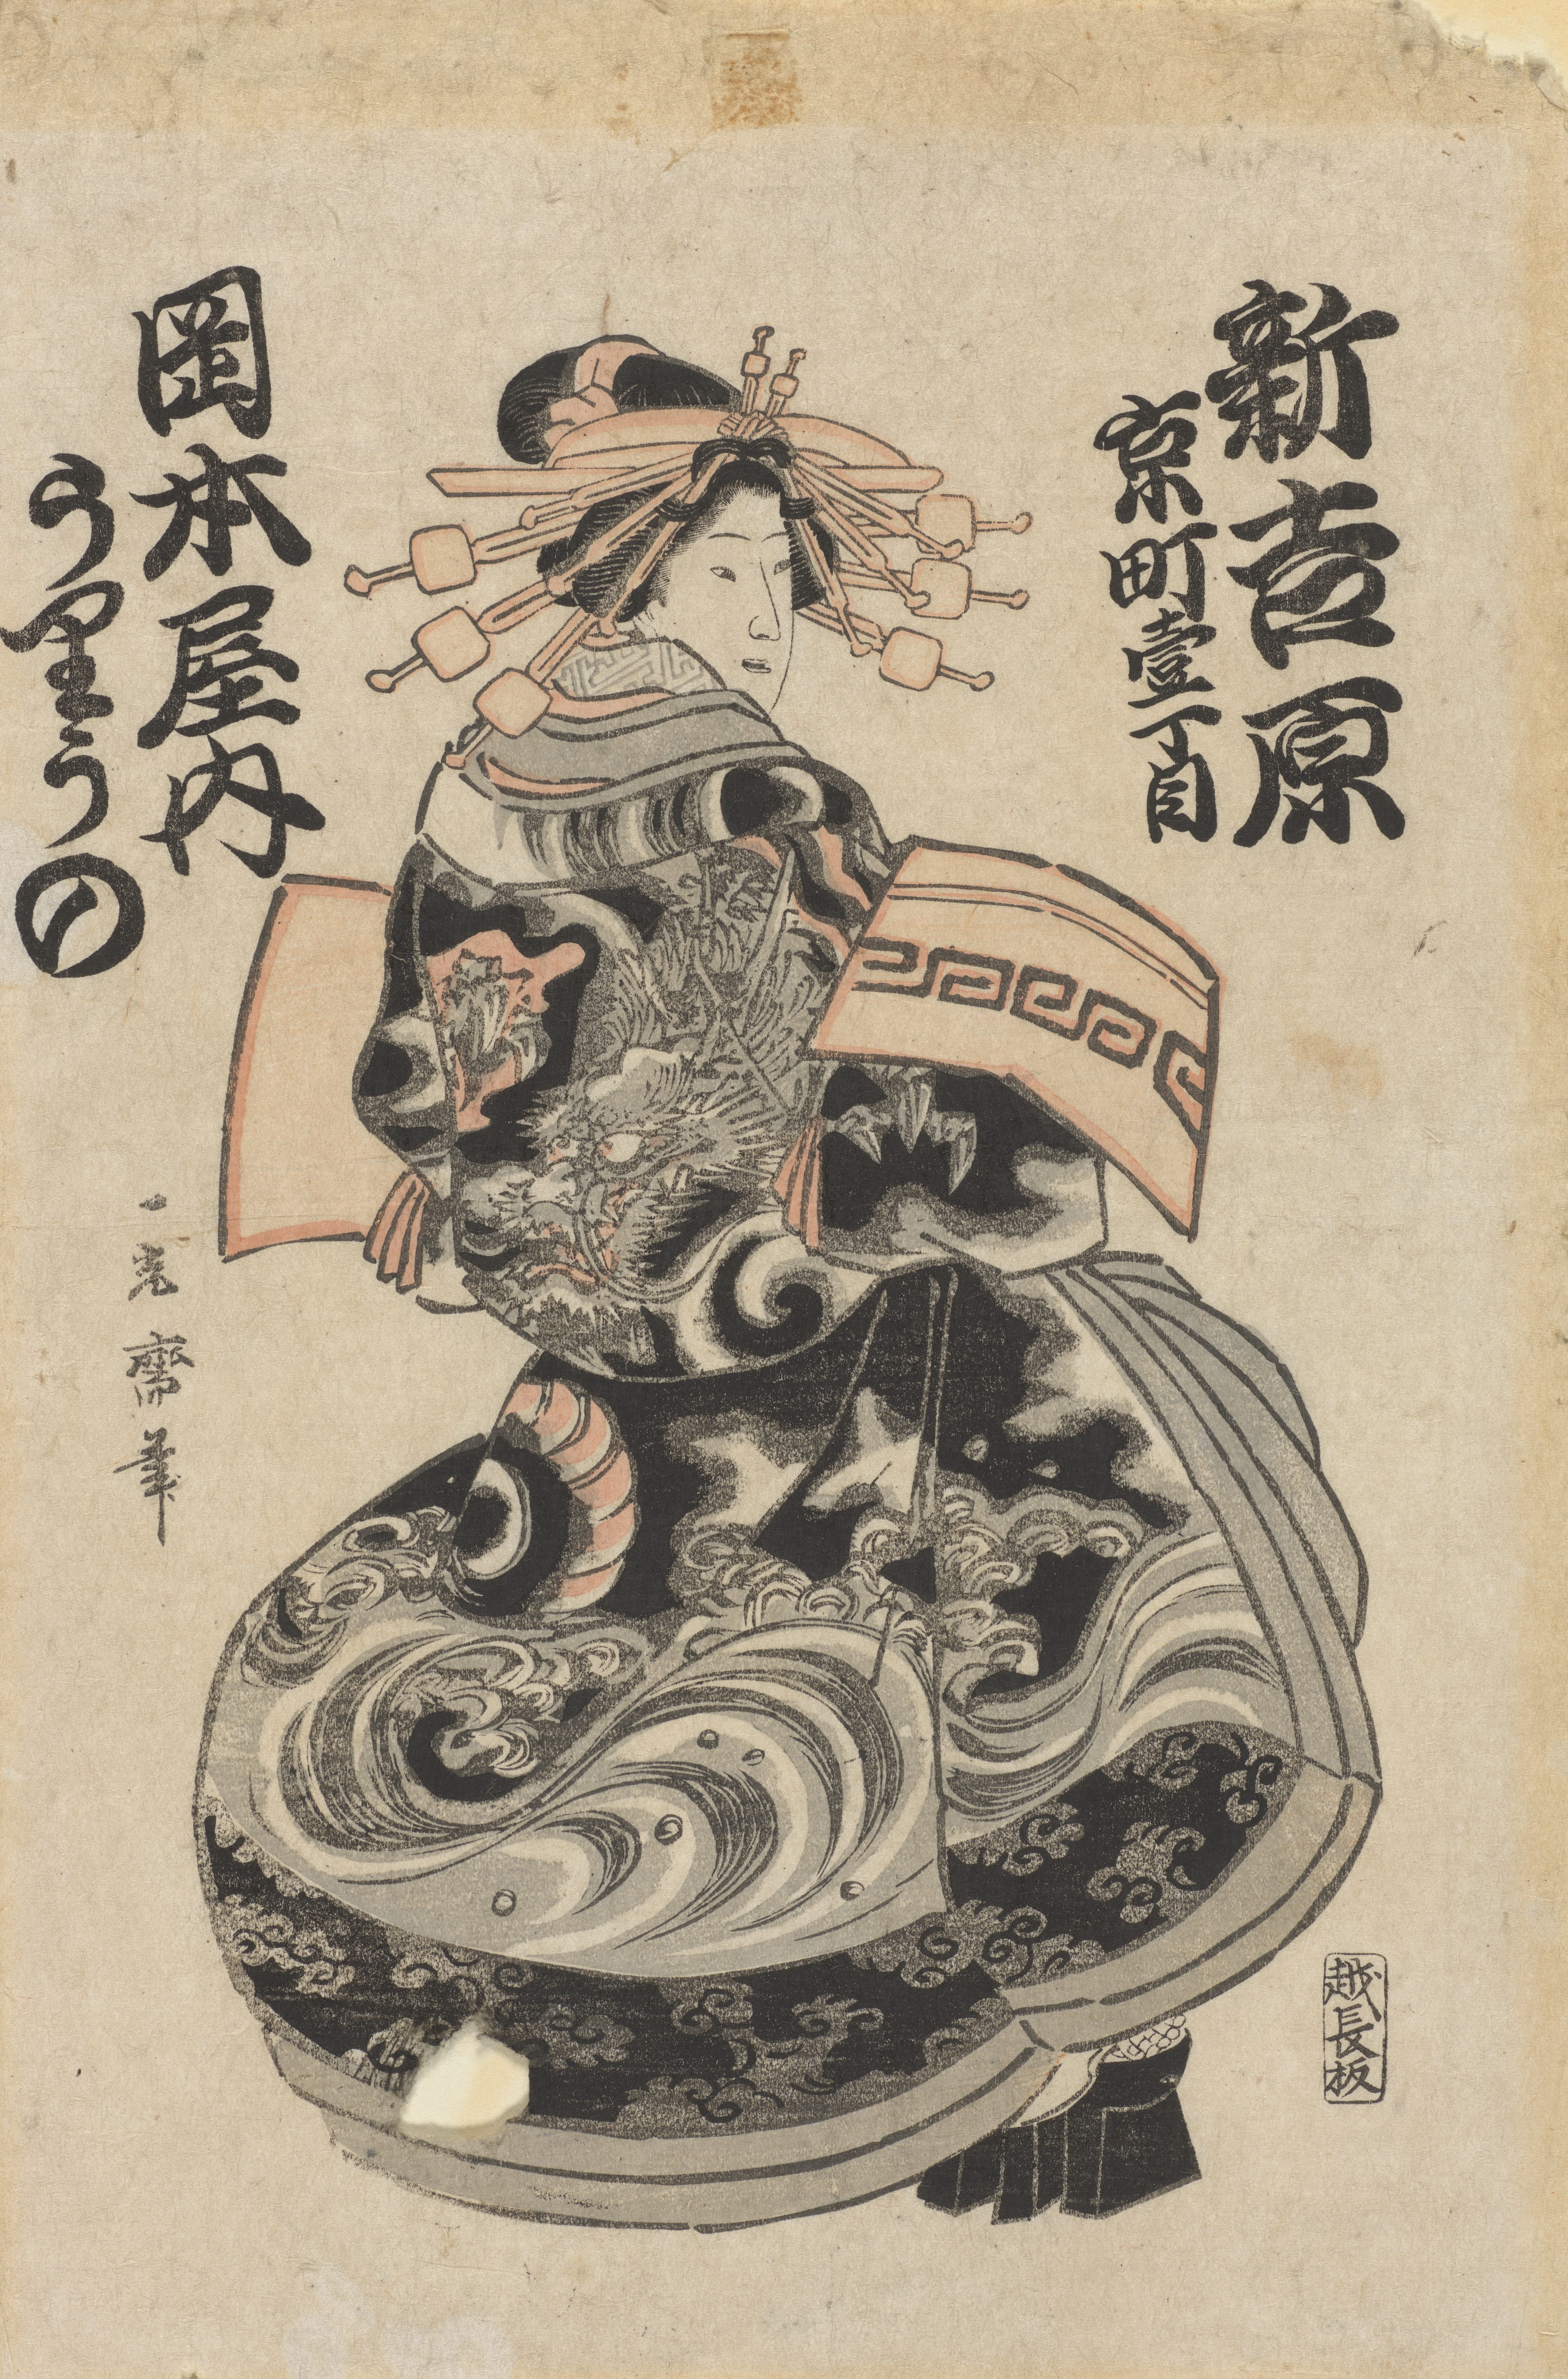 新吉原
京町壹丁目
岡本屋内
う里うの
一亮齋筆
越長板